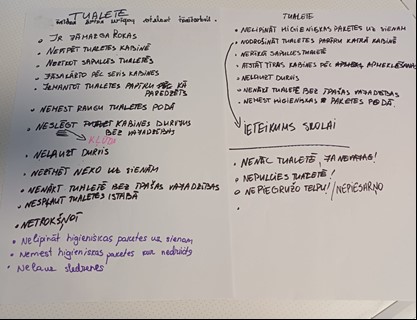 TUALETE
• IR JĀMAZGĀ ROKAS
• NESPĒT TUALETES KABĪNĒ
• NERĪKOT SAPULCES TUALETĒS
• JĀSAKĀRTO PĒC SEVIS KABĪNES
• IZMANTOT TUALETES PAPĪRU KĀ PAREDZĒTS
• NEMEST TUALETES PODĀ
• NESLĒGT KABĪNES DURVJUS
BEZ VAJADZĪBAS
KĻŪDA
• NELAUZT DURVIS
• NEZĪMĒT NEKO UZ SIENĀM
• NENĀKT TUALETĒ BEZ ĪPAŠAS VAJADZĪBAS
• NESPĻAUT TUALETES ISTABĀ
• NETROKŠŅOT
• Nelipināt higiēniskās paketes uz sienām
• Nemest higieniskas paketes kur nedrīkst
• Nelauz slēdzenes
TUALETE
• NELIPINĀT HIGIĒNISKĀS PAKETES UZ SIENĀM
• NODROŠINĀT TUALETES PAPĪRU KATRĀ KABĪNĒ
• NERĪKOT SAPULCES TUALETĒ
• ATSTĀT TĪRAS KABĪNES PĒC APMEKLĒŠANAS
• NELAUZT DURVIS
• NENĀKT TUALETĒ BEZ ĪPAŠAS VAJADZĪBAS
• NEMEST HIGIĒNISKĀS PAKETES PODĀ.
IETEIKUMS SKOLAI
• NENĀC TUALETĒ, JA NEVAJAG!
• NEPULCIES TUALETĒ!
• NEPIEGRUŽO TELPU! / NEPIESĀRŅO